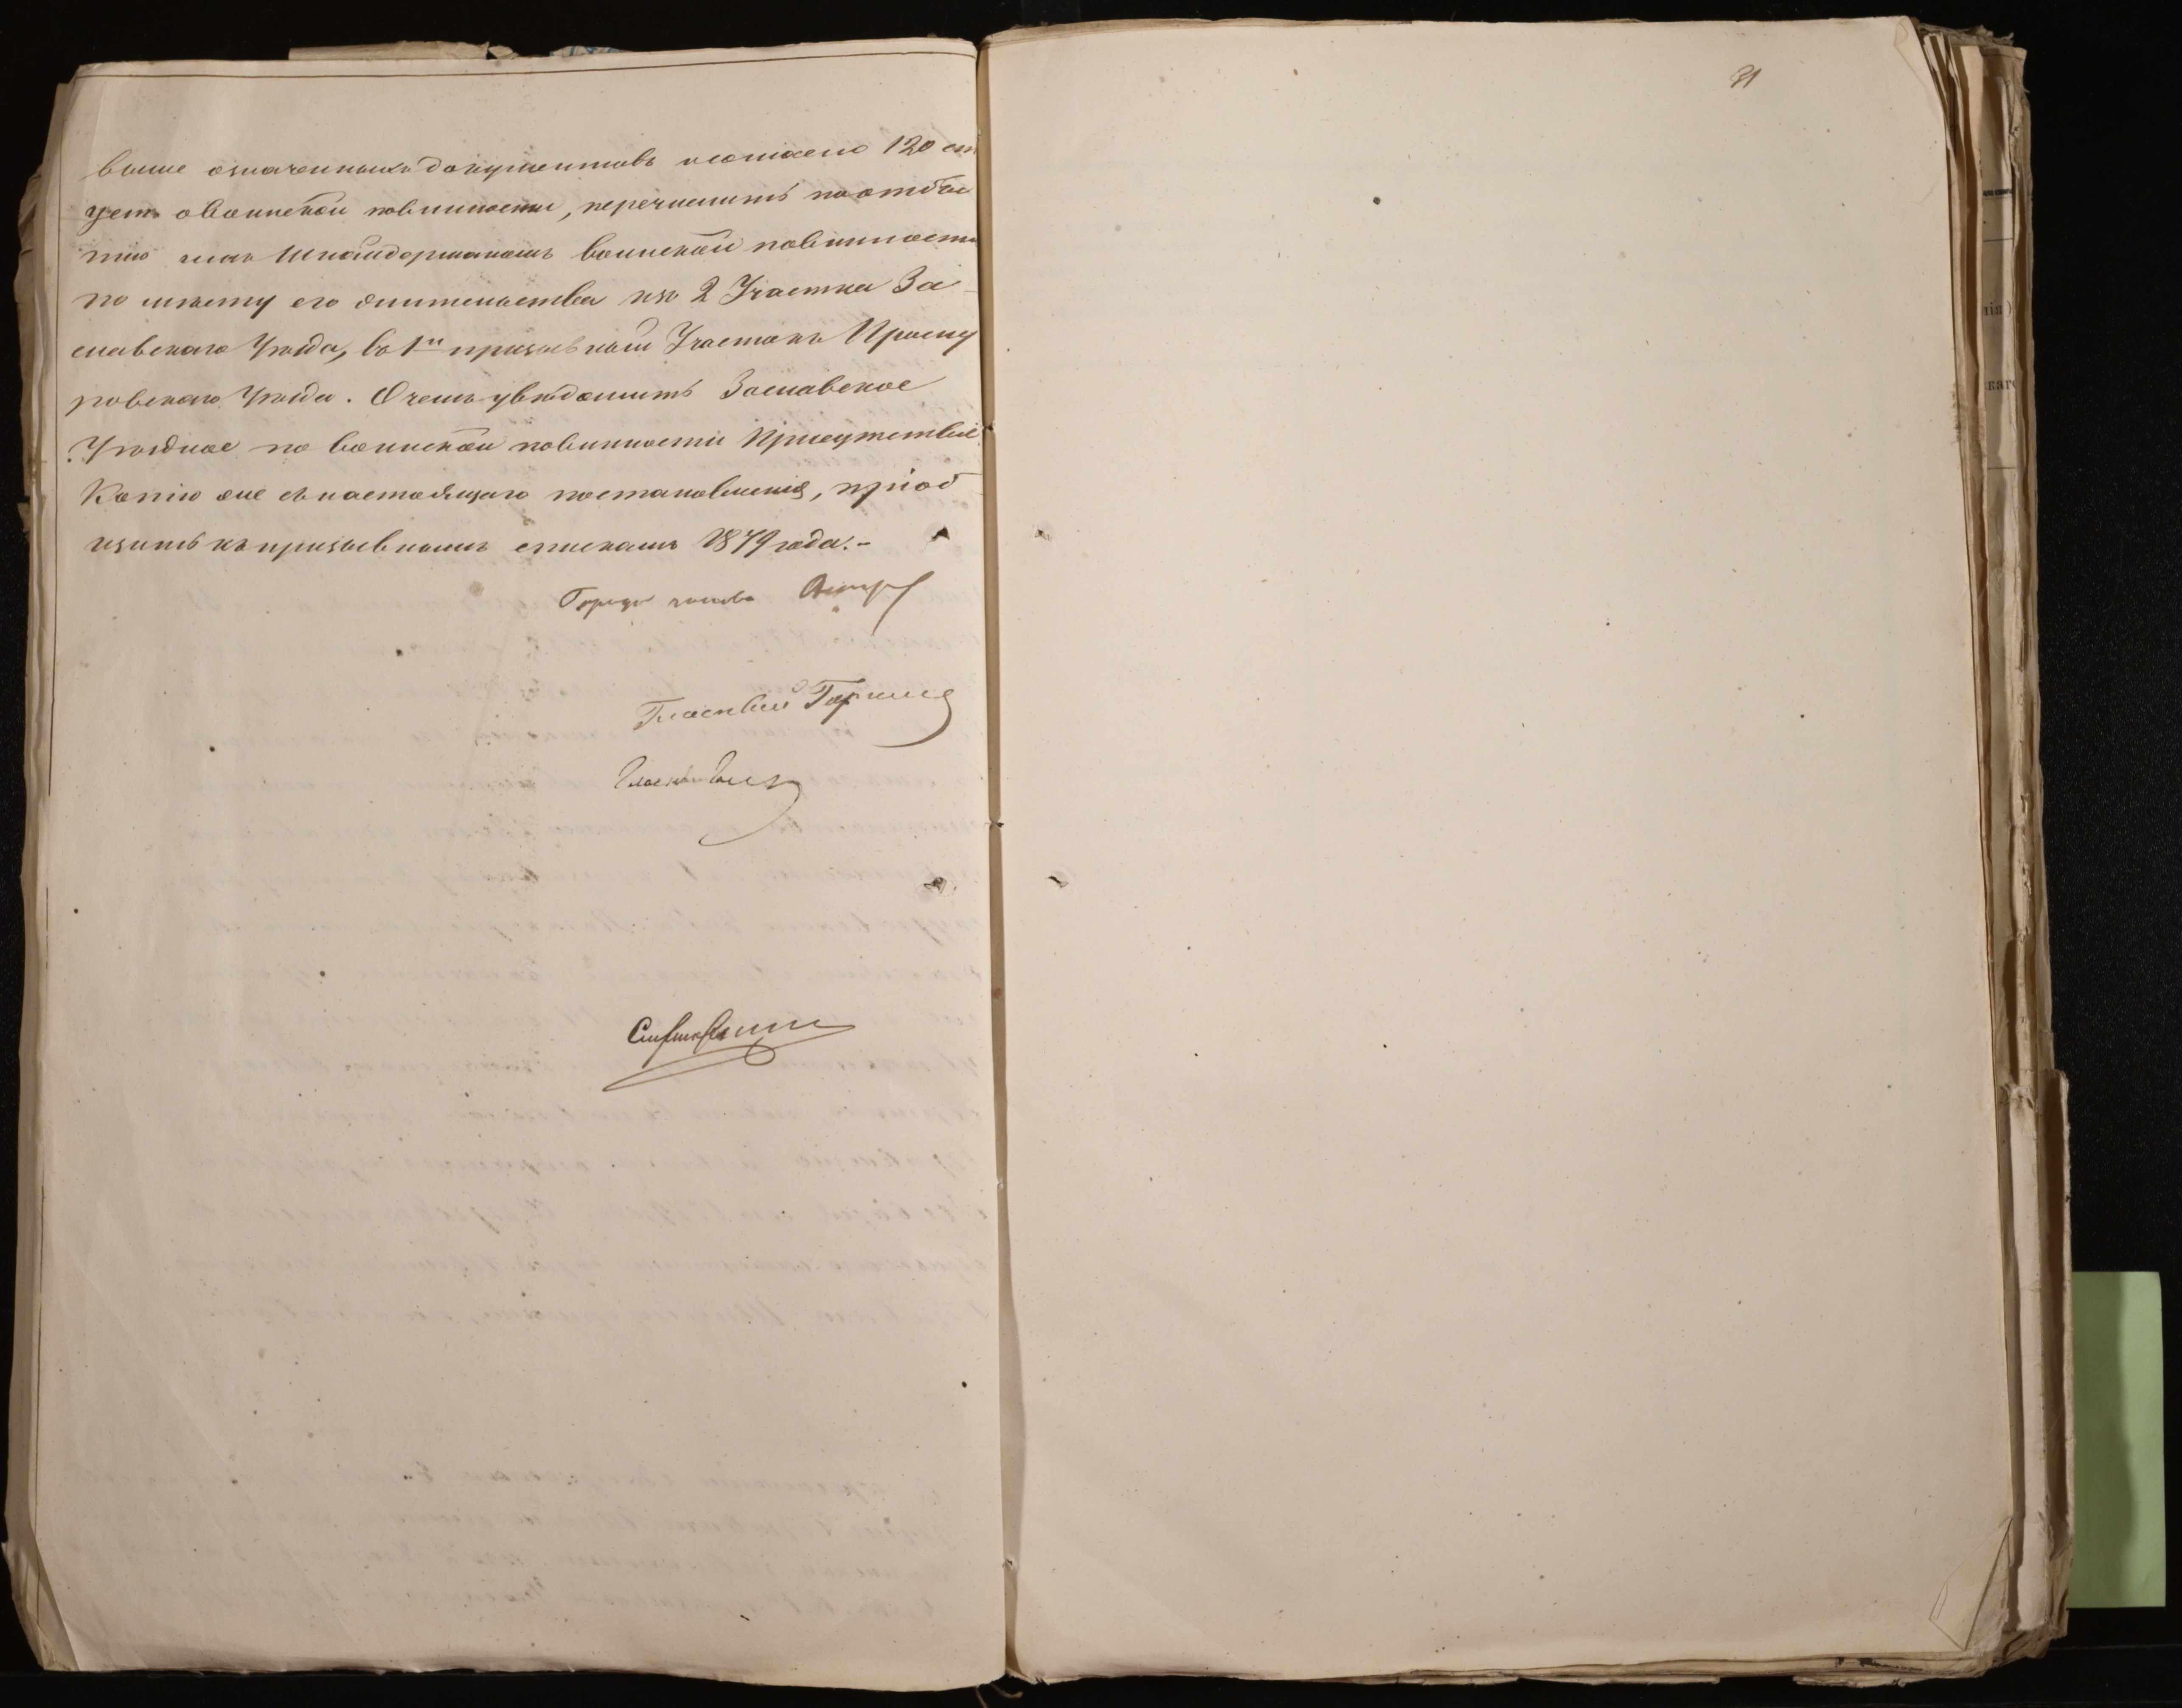 31
выше означенныхъ документовъ и согласно 120 ст
уст. о воинской повинности, перечислить по отбы
тію имъ воинской повинности
по мѣсту его жительства изъ 2 Участка За
славскаго Уѣзда, въ 1й призывный Участокъ Проску
ровскаго Уѣзда. О чемъ увѣдомить Заславское
Уѣздное по воинской повинности Присутствіе
Копію же съ настоящаго постановленія, пріоб
щить къ призывнымъ спискамъ 1879 года.-
голова
Гласный
Гласный